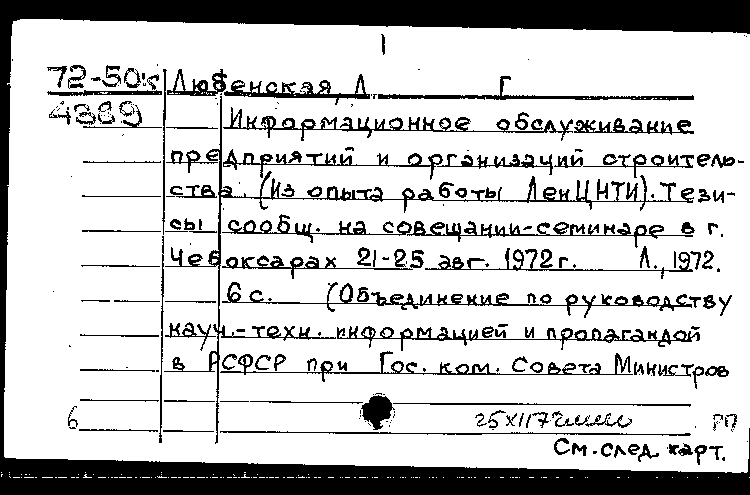 1
72-50к Любенская, Л Г
4889
Информационное обслуживание
предприятий и организаций строитель-
ства. (Из опыта работы ЛенЦНТИ). Тези-
сы сообщ. на совещании-семинаре в г.
Чебоксарах 21-25 авг. 1972 г. Л., 1972.
6 с. (Объединение по руководству
науч.-техн. информацией и пропагандой
в РСФСР при Гос. ком. Совета Министров
6 25 XI 72 РП
См. след. карт.